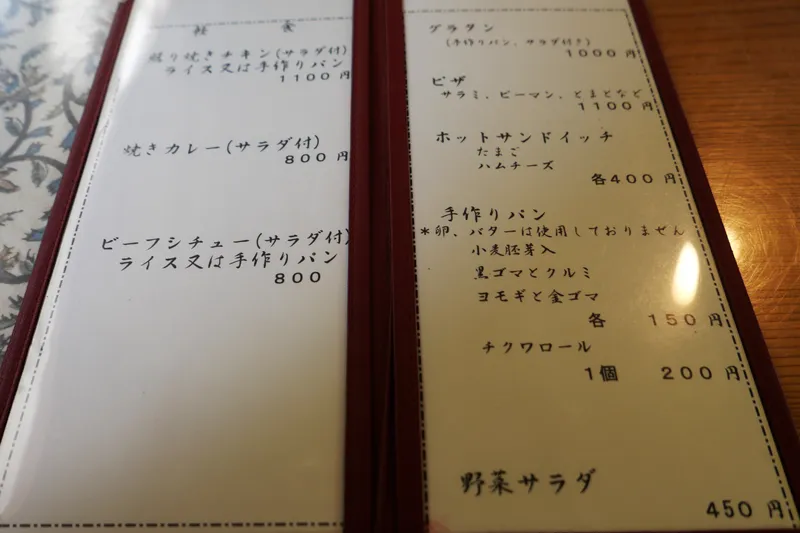 軽 食
照り焼きチキン(サラダ付)
ライス又は手作りパン
1100円
焼きカレー(サラダ付)
800円
ビーフシチュー(サラダ付)
ライス又は手作りパン
800
グラタン
(手作りパン、サラダ付き)
1000円
ピザ
サラミ、ピーマン、とまとなど
1100円
ホットサンドイッチ
たまご
ハムチーズ
各400円
手作りパン
*卵、バターは使用しておりません
小麦胚芽入
黒ゴマとクルミ
ヨモギと金ゴマ
各 150円
チクワロール
1個 200円
野菜サラダ
450円